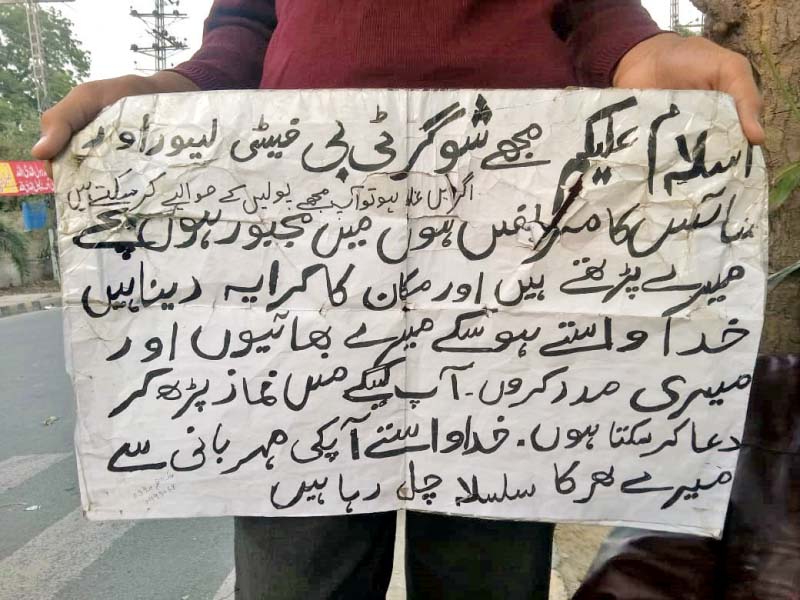 اسلام علیکم مجھے شوگر ٹی بی فیٹی لیور اور
اگر میں غلط ہو تو آپ مجھے پولیس کے حوالے کر سکتے ہیں
کا مریض ہوں میں مجبور ہوں بچے
میرے پڑھتے ہیں اور مکان کا کرایہ دینا ہیں
خدا واستے ہو سکے میرے بھائیوں اور
میری مدد کروں۔ آپ کیلئے میں نماز پڑھ کر
دعا کر سکتا ہوں۔ خدا واستے آپکی مہربانی سے
میرے گھر کا سلسلہ چل رہا ہیں